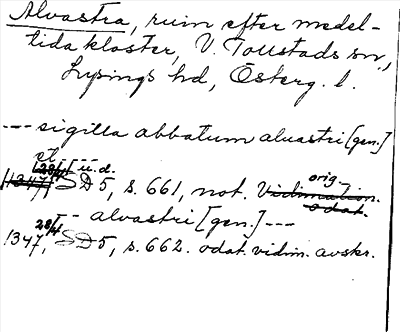 Alvastra, ruin efter medel-
tida kloster, V. Tollstads sn.,
Lysings hd, Österg. l.
--- sigilla abbatum aluastri [gen.]
et ---
28/4 u.d.
1347, SD 5, s. 661, not. Vidimation. orig.
odat.
--- alvastri [gen.] ---
28/4
1347, SD 5, s. 662. odat. vidim. avskr.